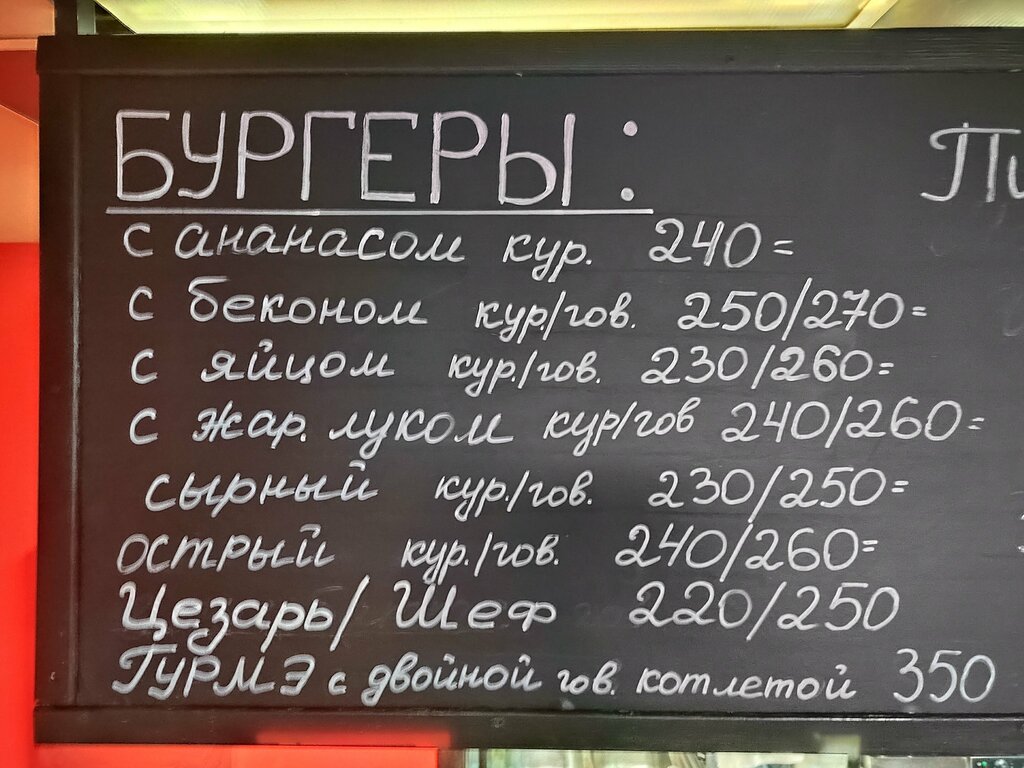 БУРГЕРЫ:
с ананасом кур. 240=
с беконом кур./гов. 250/270=
с яйцом кур./гов. 230/260=
с жар. луком кур/гов 240/260=
сырный кур./гов. 230/250=
острый кур./гов. 240/260=
Цезарь/ Шеф 220/250
ГУРМЭ с двойной гов. котлетой 350
Пи